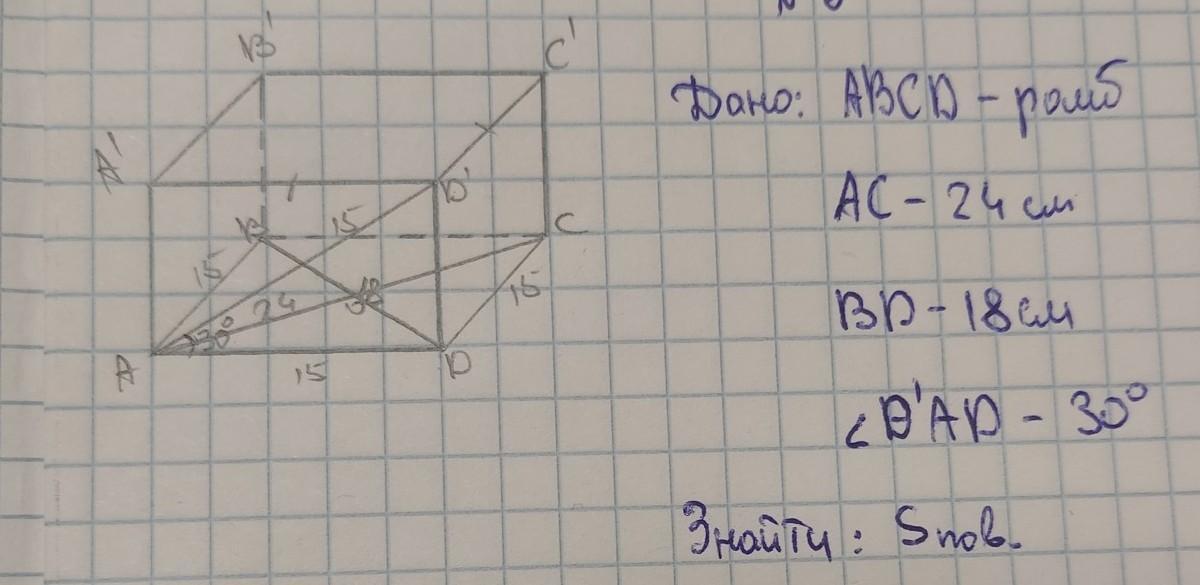 B' C'
Дано: ABCD - ромб
A' D'
AC - 24 см
B 15 C
15 24 18 15
BD - 18 см
30°
A 15 D
∠D'AD - 30°
Знайти: Sпов.